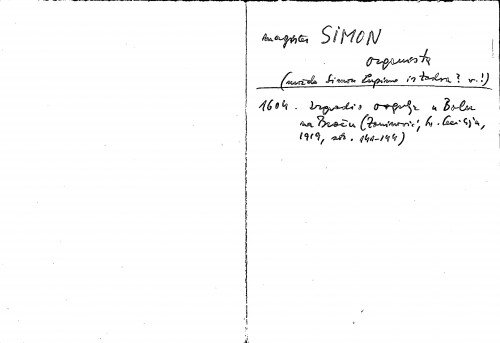 magister SIMON
orguwesta
(možda Simon Lupinus iz Zadra? v.!)
1604. izgradio orgulje u Bolu
na Braču (Zaninović, Sv. Cecilija,
1919, str. 141-144)